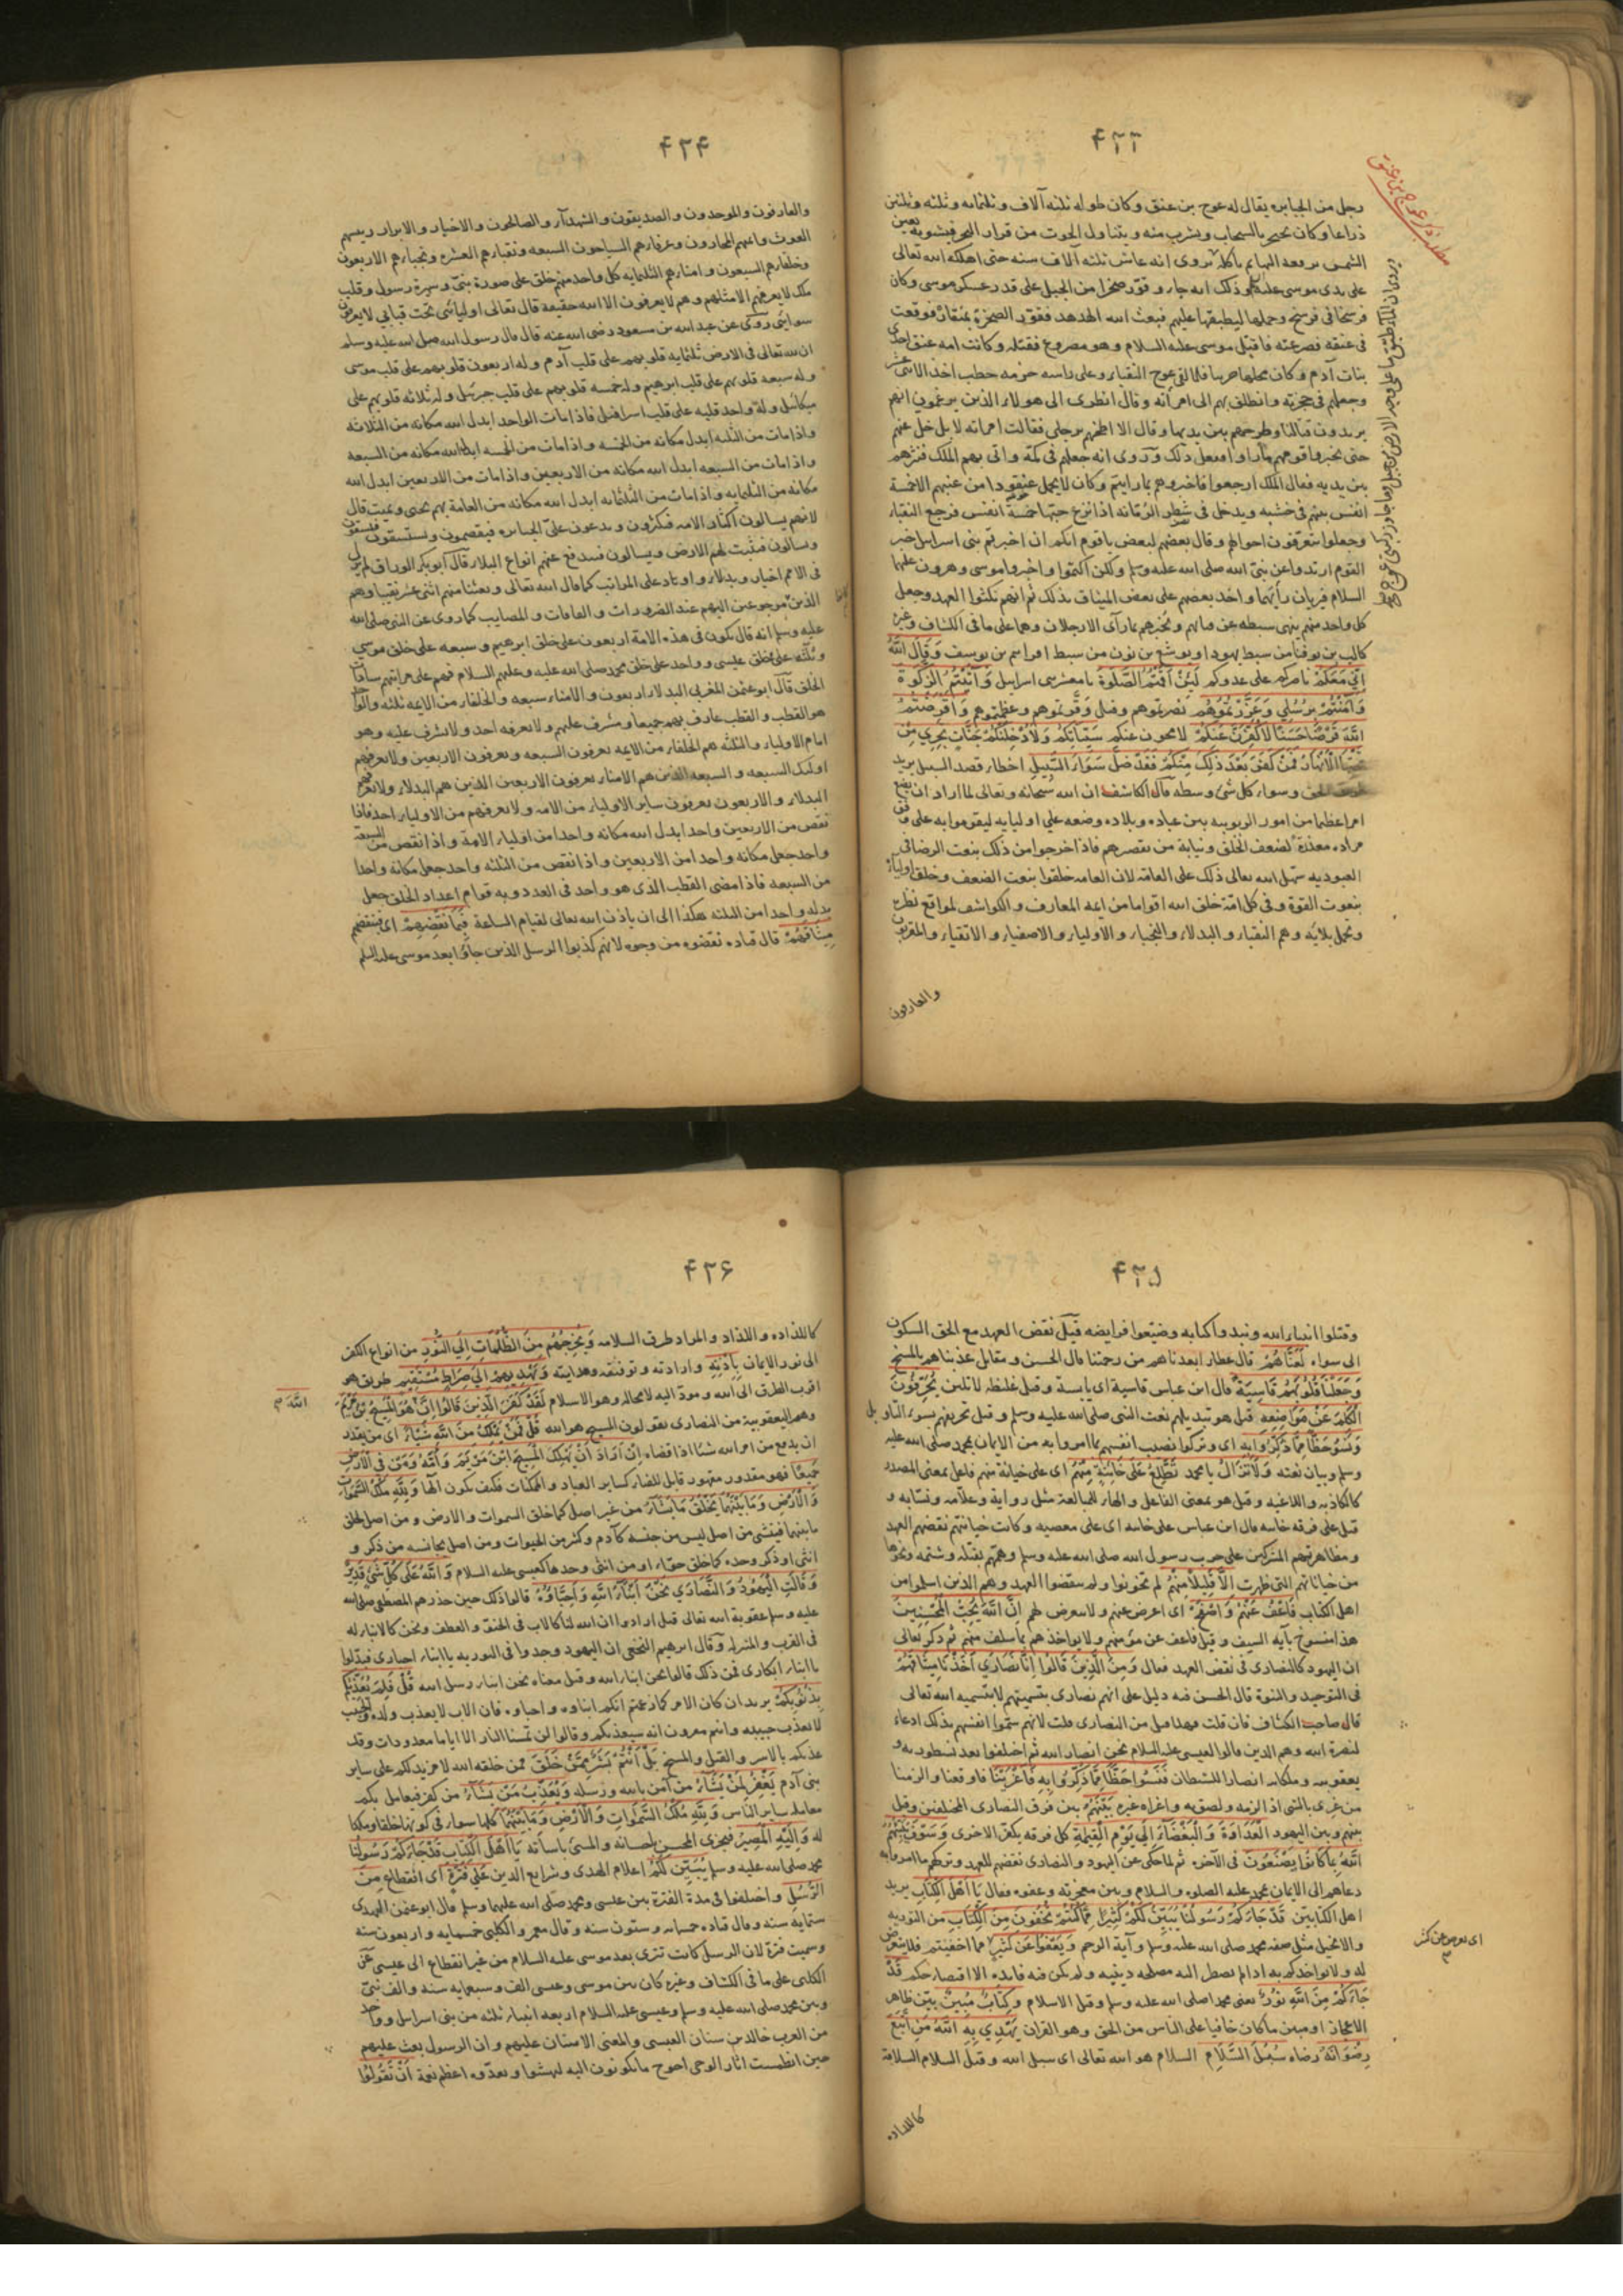 ٤٢٣
مطلب ذكر عوج بن عنق
رجل من الجبابره يقال له عوج بن عنق وكان طوله ثلثه آلاف وثلثمائه وثلثه وثلثين
ذراعا وكان يحتجر بالسحاب ويشرب منه ويتناول الحوت من قرار البحر فيشويه بعين
الشمس يرفعه اليها ثم يأكله يروى انه عاش ثلثه آلاف سنه حتى اهلكه الله تعالى
على يدى موسى عليه وذلك انه جاء وقوّر صخرا من الجبل على قدر عسكر موسى وكان
فرسخا فى فرسخ وحملها ليطبقها عليهم فبعث الله الهدهد فقوّر الصخرة بمنقاره فوقعت
فى عنقه فصرعته فاقبل موسى عليه السلام وهو مصروع فقتله وكانت امه عنق احدى
بنات آدم وكان فلما لقى عوج النقباء وعلى راسه حزمه حطب اخذ الاثنى عشر
وجعلهم فى حجزته وانطلق بهم الى امرأته وقال انظرى الى هولاء الذين يزعمون انهم
يريدون قتالنا وطرحهم بين يديها وقال الا اطحنهم برجلى فقالت امراته لا بل خل عنهم
حتى يخبروا قومهم بما راوا ففعل ذلك وروى انه جعلهم فى كمه واتى بهم الملك فنثرهم
بين يديه فقال الملك ارجعوا فاخبروهم بما رايتم وكان لا يحمل عنقودا من عنبهم الا خمسة
انفس بينهم فى خشبه ويدخل فى شطر الرمانه اذا نزع حبتها خمسة انفس فرجع النقباء
وجعلوا يتعرفون احوالهم وقال بعضهم لبعض يا قوم انكم ان اخبرتم بنى اسرائيل خبر
القوم ارتدوا عن نبى الله صلى الله عليه وسلم ولكن اكتموا واخبروا موسى وهرون عليهما
السلام فيريان رأيهما واخذ بعضهم على بعض الميثاق بذلك ثم انهم نكثوا العهد وجعل
كل واحد منهم ينهى سبطه عن قتالهم ويخبرهم بما رآى الا رجلان وهما على ما فى الكشاف وغيره
كالب بن يوفنا من سبط يهودا ويوشع بن نون من سبط افرايم بن يوسف وَقَالَ اللهُ
اِنِّي مَعَكُمْ ناصركم على عدوكم لَئِنْ اَقَمْتُمُ الصَّلٰوةَ يا معشر بنى اسرائيل وَآتَيْتُمُ الزَّكٰوةَ
وَآمَنْتُمْ بِرُسُلِي وَعَزَّرْتُمُوهُمْ نصرتموهم وقيل وقرتموهم وعظمتموهم وَاَقْرَضْتُمُ
اللهَ قَرْضًا حَسَنًا لَاُكَفِّرَنَّ عَنْكُمْ لامحون عنكم سَيِّئَاتِكُمْ وَلَاُدْخِلَنَّكُمْ جَنَّاتٍ تَجْرِي مِنْ
تَحْتِهَا الْاَنْهَارُ فَمَنْ كَفَرَ بَعْدَ ذَلِكَ مِنْكُمْ فَقَدْ ضَلَّ سَوَاءَ السَّبِيلِ اخطاء قصد السبيل يريد
طريق الحق وسواء كل شئ وسطه قال الكاشفى ان الله سبحانه وتعالى لما اراد ان يضع
امرا عظيما من امور الربوبيه بين عباده وبلاده وضعه على اوليايه ليقوموا به على وفق
مراده معذرة لضعف الخلق ونيابة من تقصيرهم فاذا خرجوا من ذلك بنعت الرضا فى
العبوديه سهل الله تعالى ذلك على العامه لان العامه خلقوا بنعت الضعف وخلق اولياءه
بنعوت القوة وفى كل امة خلق الله اقواما من ايمه المعارف والكواشف لمواقع نظره
وتحمل بلائه وهم النقباء والبدلاء والنجباء والاولياء والاصفياء والاتقياء والمقربون
والعارفون
٤٢٤
والعارفون والموحدون والصديقون والشهداء والصالحون والاخيار والابرار رييسهم
الغوث وايمتهم المختارون وعرفاؤهم السياحون السبعه ونقباؤهم العشره ونجباؤهم الاربعون
وخلفاؤهم السبعون وامناؤهم الثلثمايه كل واحد منهم خلق على صورة نبىّ وسيرة رسول وقلب
ملك لا يعرفهم الا مثلهم وهم لا يعرفون الا الله حقيقة قال تعالى اوليائى تحت قبابى لا يعرفهم
سوائى روى عن عبد الله بن مسعود رضى الله عنه قال قال رسول الله صلى الله عليه وسلم
ان لله تعالى فى الارض ثلثمايه قلوبهم على قلب آدم وله اربعون قلوبهم على قلب موسى
وله سبعه قلوبهم على قلب ابرهيم وله خمسه قلوبهم على قلب جبرئيل وله ثلاثه قلوبهم على
ميكائيل وله واحد قلبه على قلب اسرافيل فاذا مات الواحد ابدل الله مكانه من الثلاثه
واذا مات من الثلثه ابدل مكانه من الخمسه واذا مات من الخمسه ابدل الله مكانه من السبعه
واذا مات من السبعه ابدل الله مكانه من الاربعين واذا مات من الاربعين ابدل الله
مكانه من الثلثمايه واذا مات من الثلثمايه ابدل الله مكانه من العامة بهم يحيى ويميت قال
لانهم يسالون اكثار الامه فيكثرون ويدعون على الجبابره فيقصمون ويستسقون فيسقون
ويسالون فتنبت لهم الارض ويسالون فيدفع عنهم انواع البلاء قال ابو بكر الوراق لم يزل
فى الامم اخيار وبدلاء واوتاد على المراتب كما قال الله تعالى وبعثنا منهم اثنى عشر نقيبا وهم
الذين مرجوعين اليهم عند الضرورات والفاقات والمصايب كما روى عن النبى صلى الله
عليه وسلم انه قال تكون فى هذه الامة اربعون على خلق ابرهيم وسبعه على خلق موسى
وثلثه على خلق عيسى وواحد على خلق محمد صلى الله عليه وعليهم السلام فهم على مراتبهم سادات
الخلق قال ابو عثمن المغربى البدلاء اربعون والامناء سبعه والخلفاء من الايمه ثلثه والواحد
هو القطب والقطب عارف بهم جميعا ومشرف عليهم ولا يعرفه احد ولا يشرف عليه وهو
امام الاولياء والثلثه هم الخلفاء من الايمه يعرفون السبعه ويعرفون الاربعين ولا يعرفهم
اوليك السبعه والسبعه الذين هم الامناء يعرفون الاربعين الذين هم البدلاء ولا يعرفهم
البدلاء والاربعون يعرفون ساير الاولياء من الامه ولا يعرفهم من الاولياء احد فاذا
نقص من الاربعين واحد ابدل الله مكانه واحدا من اولياء الامة واذا نقص من السبعة
واحد جعل مكانه واحدا من الاربعين واذا نقص من الثلثه واحد جعل مكانه واحدا
من السبعه فاذا مضى القطب الذى هو واحد فى العدد وبه قوام اعداد الخلق جعل
بدله واحدا من الثلثه هكذا الى ان ياذن الله تعالى لقيام الساعة فَبِمَا نَقْضِهِمْ اى فبنقضهم
مِيثَاقَهُمْ قال قتاده نقضوه من وجوه لانهم كذبوا الرسل الذين جاؤا بعد موسى عليه السلم
٤٢٥
وقتلوا انبياء الله ونبذوا كتابه وضيّعوا فرايضه قيل نقض العهد مع الحق السكون
الى سواه لَعَنَّاهُمْ قال عطاء ابعدناهم من رحمتنا قال الحسن ومقاتل عذبناهم بالمسخ
وَجَعَلْنَا قُلُوبَهُمْ قَاسِيَةً قال ابن عباس قاسية اى يابسة وقيل غليظه لا تلين يُحَرِّفُونَ
الْكَلِمَ عَنْ مَوَاضِعِهِ قيل هو تبديلهم نعت النبى صلى الله عليه وسلم وقيل تحريفهم بسوء التاويل
وَنَسُوا حَظًّا مِمَّا ذُكِّرُوا بِهِ اى وتركوا نصيب انفسهم مما امروا به من الايمان بمحمد صلى الله عليه
وسلم وبيان نعته وَلَا تَزَالُ يا محمد تَطَّلِعُ عَلَى خَائِنَةٍ مِنْهُمْ اى على خيانة منهم فاعل بمعنى المصدر
كالكاذبه واللاغيه وقيل هو بمعنى الفاعل والهاء للمبالغة مثل رواية وعلّامه ونسّابه و
قيل على فرقه خاينه قال ابن عباس على خاينه اى على معصيه وكانت خيانتهم نقضهم العهد
ومظاهرتهم المشركين على حرب رسول الله صلى الله عليه وسلم وهمّهم بقتله وشتمه ونحوها
من خياناتهم التى ظهرت اِلَّا قَلِيلًا مِنْهُمْ لم يخونوا ولم ينقضوا العهد وهم الذين اسلموا من
اهل الكتاب فَاعْفُ عَنْهُمْ وَاصْفَحْ اى اعرض عنهم ولا تتعرض لهم اِنَّ اللهَ يُحِبُّ الْمُحْسِنِينَ
هذا منسوخ بآيه السيف وقيل فاعف عن مؤمنهم ولا تواخذهم بما سلف منهم ثم ذكر تعالى
ان اليهود كالنصارى فى نقض العهد فقال وَمِنَ الَّذِينَ قَالُوا اِنَّا نَصَارَى اَخَذْنَا مِيثَاقَهُمْ
فى التوحيد والنبوة قال الحسن فيه دليل على انهم نصارى بتسميتهم لا بتسميه الله تعالى
قال صاحب الكشاف فان قلت فهلا قيل من النصارى قلت لانهم سمّوا انفسهم بذلك ادعاء
لنصرة الله وهم الذين قالوا لعيسى عليه السلام نحن انصار الله ثم اختلفوا بعد نسطوريه و
يعقوبيه وملكانيه انصارا للشيطان فَنَسُوا حَظًّا مِمَّا ذُكِّرُوا بِهِ فَاَغْرَيْنَا فاوقعنا والزمنا
من غرى بالشى اذا لزمه ولصق به واغراه غيره بَيْنَهُمُ بين فرق النصارى المختلفين وقيل
بينهم وبين اليهود الْعَدَاوَةَ وَالْبَغْضَاءَ اِلَى يَوْمِ الْقِيٰمَةِ كل فرقه تكفر الاخرى وَسَوْفَ يُنَبِّئُهُمُ
اللهُ بِمَا كَانُوا يَصْنَعُونَ فى الآخره ثم لما حكى عن اليهود والنصارى نقضهم للعهد وتركهم ما امروا به
دعاهم الى الايمان بمحمد عليه الصلوه والسلام وبين معجزته وعفوه فقال يَا اَهْلَ الْكِتَابِ يريد
اهل الكتابين قَدْ جَاءَكُمْ رَسُولُنَا يُبَيِّنُ لَكُمْ كَثِيرًا مِمَّا كُنْتُمْ تُخْفُونَ مِنَ الْكِتَابِ من التوريه
والانجيل مثل صفه محمد صلى الله عليه وسلم وآية الرجم وَيَعْفُوا عَنْ كَثِيرٍ مما اخفيتم فلا يتعرض
له ولا يواخذكم به اذا لم تضطر اليه مصلحه دينيه ولم يكن فيه فايده الا اقتصار حكم قَدْ
جَاءَكُمْ مِنَ اللهِ نُورٌ يعنى محمدا صلى الله عليه وسلم وقيل الاسلام وَكِتَابٌ مُبِينٌ بيّن ظاهر
الاعجاز او مبين ما كان خافيا على الناس من الحق وهو القران يَهْدِي بِهِ اللهُ مَنِ اتَّبَعَ
رِضْوَانَهُ رضاه سُبُلَ السَّلَامِ السلام هو الله تعالى اى سبل الله وقيل السلام السلامة
كاللذاذه
٤٢٦
كاللذاذه واللذاذ والمراد طرق السلامه وَيُخْرِجُهُمْ مِنَ الظُّلُمَاتِ اِلَى النُّورِ من انواع الكفر
الى نور الايمان بِاِذْنِهِ وارادته وتوفيقه وهدايته وَيَهْدِيهِمْ اِلَى صِرَاطٍ مُسْتَقِيمٍ طريق هو
اقرب الطرق الى الله ومودّ اليه لا محاله وهو الاسلام لَقَدْ كَفَرَ الَّذِينَ قَالُوا اِنَّ هُوَ الْمَسِيحُ بْنُ مَرْيَمَ
الله
وهم اليعقوبية من النصارى يقولون المسيح هو الله قُلْ فَمَنْ يَمْلِكُ مِنَ اللهِ شَيْئًا اى من يقدر
ان يدفع من امر الله شيئا اذا قضاه اِنْ اَرَادَ اَنْ يُهْلِكَ الْمَسِيحَ ابْنَ مَرْيَمَ وَاُمَّهُ وَمَنْ فِي الْاَرْضِ
جَمِيعًا فهو مقدور مقهور قابل للفناء كساير العباد والممكنات فكيف يكون الها وَلِلّهِ مُلْكُ السَّمٰوَاتِ
وَالْاَرْضِ وَمَا بَيْنَهُمَا يَخْلُقُ مَا يَشَاءُ من غير اصل كما خلق السموات والارض ومن اصل كخلق
ما بينهما فينشى من اصل ليس من جنسه كآدم وكثير من الحيوات ومن اصل يجانسه من ذكر و
انثى او ذكر وحده كما خلق حوّاء او من انثى وحدها كعيسى عليه السلام وَاللهُ عَلَى كُلِّ شَيْءٍ قَدِيرٌ
وَقَالَتِ الْيَهُودُ وَالنَّصَارَى نَحْنُ اَبْنَاءُ اللهِ وَاَحِبَّاؤُهُ قالوا ذلك حين حذرهم المصطفى صلى الله
عليه وسلم عقوبة الله تعالى قيل ارادوا ان الله لنا كالاب فى الحنو والعطف ونحن كالابناء له
فى القرب والمنزله وقال ابرهيم النخعى ان اليهود وجدوا فى التوريه يا ابناء احبارى فبدّلوا
يا ابناء ابكارى فمن ذلك قالوا نحن ابناء الله وقيل معناه نحن ابناء رسل الله قُلْ فَلِمَ يُعَذِّبُكُمْ
بِذُنُوبِكُمْ يريد ان كان الامر كما زعمتم انكم ابناوه واحباوه فان الاب لا يعذب ولده والحبيب
لا يعذب حبيبه وانتم مقرون انه سيعذبكم وقالوا لن تمسنا النار الا اياما معدودات وقد
عذبكم بالاسر والقتل والمسخ بَلْ اَنْتُمْ بَشَرٌ مِمَّنْ خَلَقَ ممن خلقه الله لا مزيد لكم على ساير
بنى آدم يَغْفِرُ لِمَنْ يَشَاءُ من آمن بالله ورسله وَيُعَذِّبُ مَنْ يَشَاءُ من كفر فيعامل بكم
معامله ساير الناس وَلِلّهِ مُلْكُ السَّمٰوَاتِ وَالْاَرْضِ وَمَا بَيْنَهُمَا كلها سواء فى كونها خلقا وملكا
له وَاِلَيْهِ الْمَصِيرُ فيجزى المحسن باحسانه والمسئ باساته يَا اَهْلَ الْكِتَابِ قَدْ جَاءَكُمْ رَسُولُنَا
محمد صلى الله عليه وسلم يُبَيِّنُ لَكُمْ اعلام الهدى وشرايع الدين عَلَى فَتْرَةٍ اى انقطاع مِنَ
الرُّسُلِ واختلفوا فى مدة الفترة بين عيسى ومحمد صلى الله عليهما وسلم قال ابو عثمن النهدى
ستمايه سنه وقال قتاده خمسمايه وستون سنه وقال معمر والكلبى خمسمايه واربعون سنه
وسميت فترة لان الرسل كانت تترى بعد موسى عليه السلام من غير انقطاع الى عيسى عن
الكلبى على ما فى الكشاف وغيره كان بين موسى وعيسى الف وسبعمايه سنه والف نبىّ
وبين محمد صلى الله عليه وسلم وعيسى عليه السلام اربعه انبياء ثلثه من بنى اسرائيل وواحد
من العرب خالد بن سنان العبسى والمعنى الامتنان عليهم وان الرسول بعث عليهم
حين انطمست اثار الوحى احوج ما يكونون اليه ليهشوا ويعدّوه اعظم نعمة اَنْ تَقُولُوا